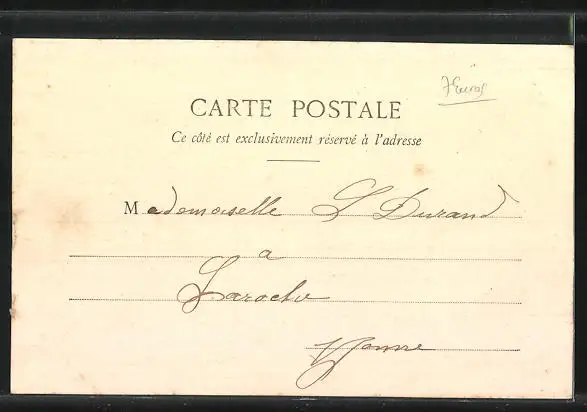 7 Euros
CARTE POSTALE
Ce côté est exclusivement réservé à l'adresse
Mademoiselle L Durand
a
Laroche
Yonne